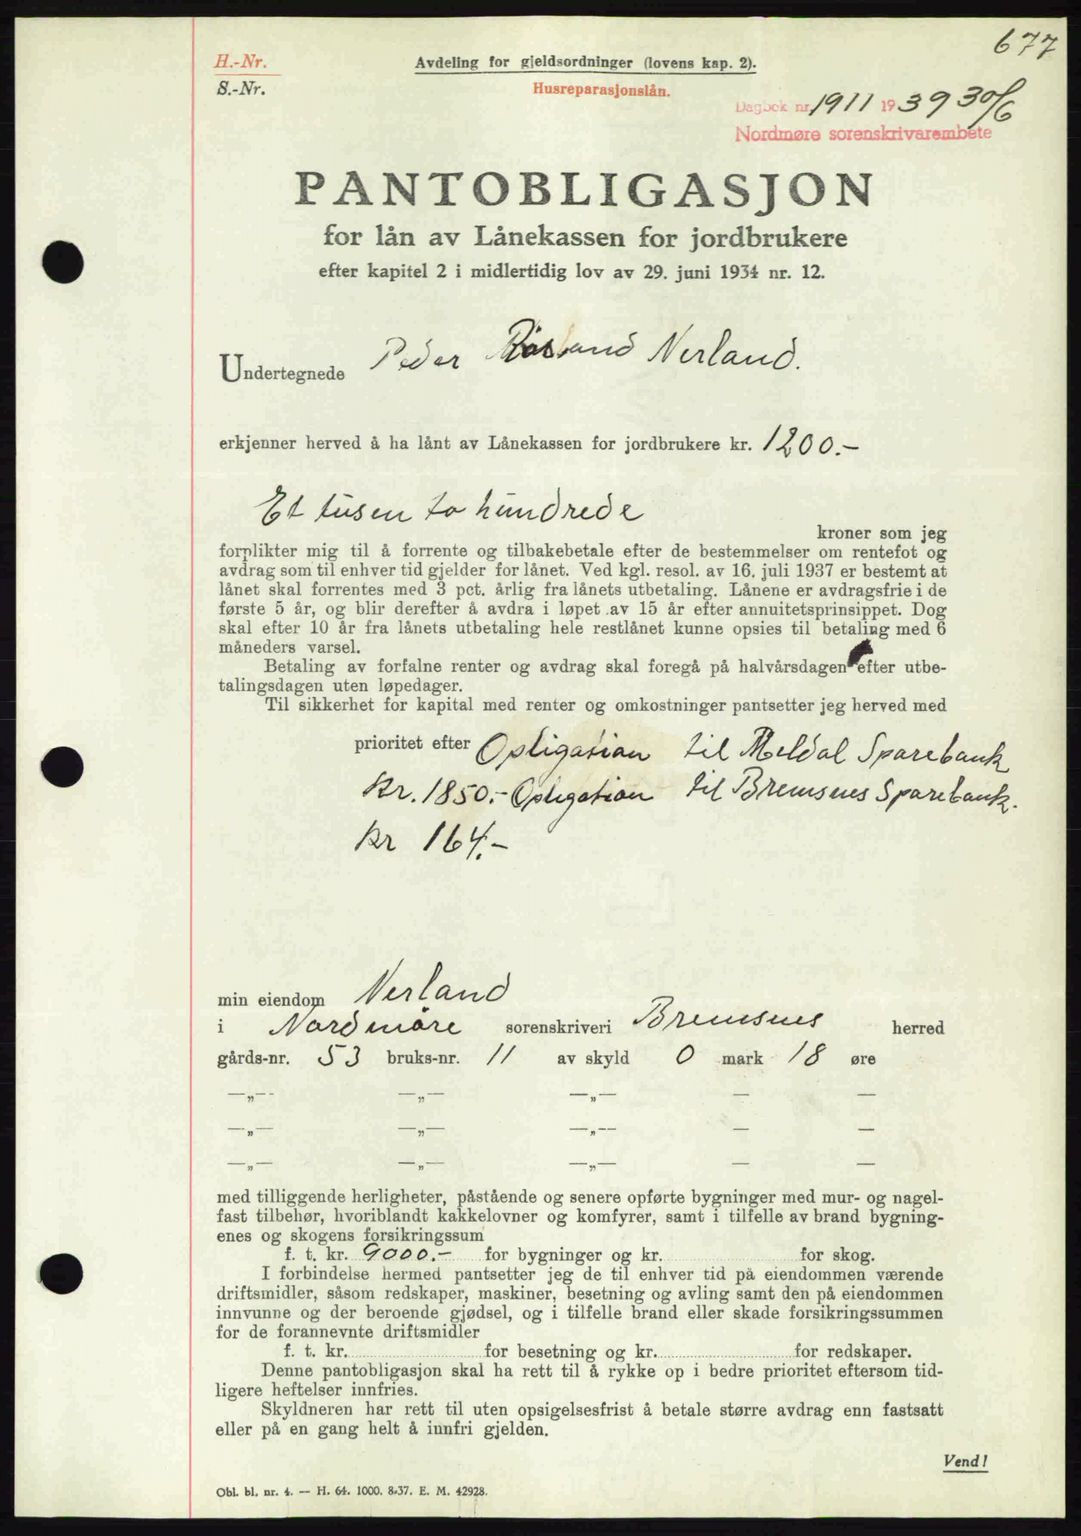 677
H.-Nr.
S.-Nr.
Avdeling for gjeldsordninger (lovens kap. 2).
Husreparasjonslån.
Dagbok nr. 1911 1939 30/6
Nordmøre sorenskriverembete
PANTOBLIGASJON
for lån av Lånekassen for jordbrukere
efter kapitel 2 i midlertidig lov av 29. juni 1934 nr. 12.
Undertegnede Peder Nerland.
erkjenner herved å ha lånt av Lånekassen for jordbrukere kr. 1200.-
Et tusen to hundrede
kroner som jeg
forplikter mig til å forrente og tilbakebetale efter de bestemmelser om rentefot og
avdrag som til enhver tid gjelder for lånet. Ved kgl. resol. av 16. juli 1937 er bestemt at
lånet skal forrentes med 3 pct. årlig fra lånets utbetaling. Lånene er avdragsfrie i de
første 5 år, og blir derefter å avdra i løpet av 15 år efter annuitetsprinsippet. Dog
skal efter 10 år fra lånets utbetaling hele restlånet kunne opsies til betaling med 6
måneders varsel.
Betaling av forfalne renter og avdrag skal foregå på halvårsdagen efter utbe-
talingsdagen uten løpedager.
Til sikkerhet for kapital med renter og omkostninger pantsetter jeg herved med
prioritet efter Opligasian til Meldal Sparebank
kr. 1850.- Opligation til Bremsnes Sparebank.
kr 164.-
min eiendom Nerland
i Nordmøre sorenskriveri Bremsnes herred
gårds-nr. 53 bruks-nr. 11 av skyld 0 mark 18 øre
—„— —„— —„— — —
—„— —„— —„— — —
—„— —„— —„— — —
med tilliggende herligheter, påstående og senere opførte bygninger med mur- og nagel-
fast tilbehør, hvoriblandt kakkelovner og komfyrer, samt i tilfelle av brand bygning-
enes og skogens forsikringssum
f. t. kr. 9000.- for bygninger og kr. for skog.
I forbindelse hermed pantsetter jeg de til enhver tid på eiendommen værende
driftsmidler, såsom redskaper, maskiner, besetning og avling samt den på eiendommen
innvunne og der beroende gjødsel, og i tilfelle brand eller skade forsikringssummen
for de forannevnte driftsmidler
f. t. kr. for besetning og kr. for redskaper.
Denne pantobligasjon skal ha rett til å rykke op i bedre prioritet eftersom tid-
ligere heftelser innfries.
Skyldneren har rett til uten opsigelsesfrist å betale større avdrag enn fastsatt
eller på en gang helt å innfri gjelden.
Vend!
Obl. bl. nr. 4. — H. 64. 1000. 8-37. E. M. 42928.